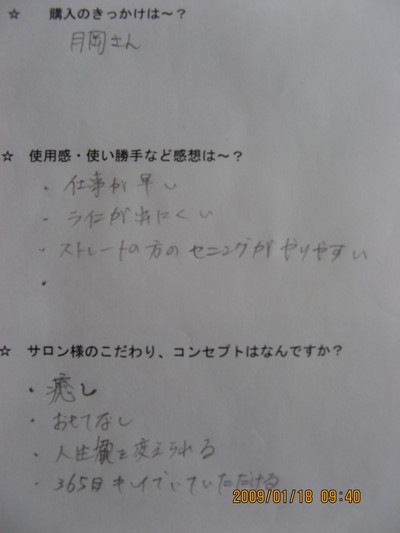 ☆ 購入のきっかけは～？
月岡さん
☆ 使用感・使い勝手など感想は～？
・仕事が早い
・ラインが出にくい
・ストレートの方のセニングがやりやすい
・
☆ サロン様のこだわり、コンセプトはなんですか？
・癒し
・おもてなし
・人生観を変えられる
・365日キレイでいていただける
2009/01/18 09:40